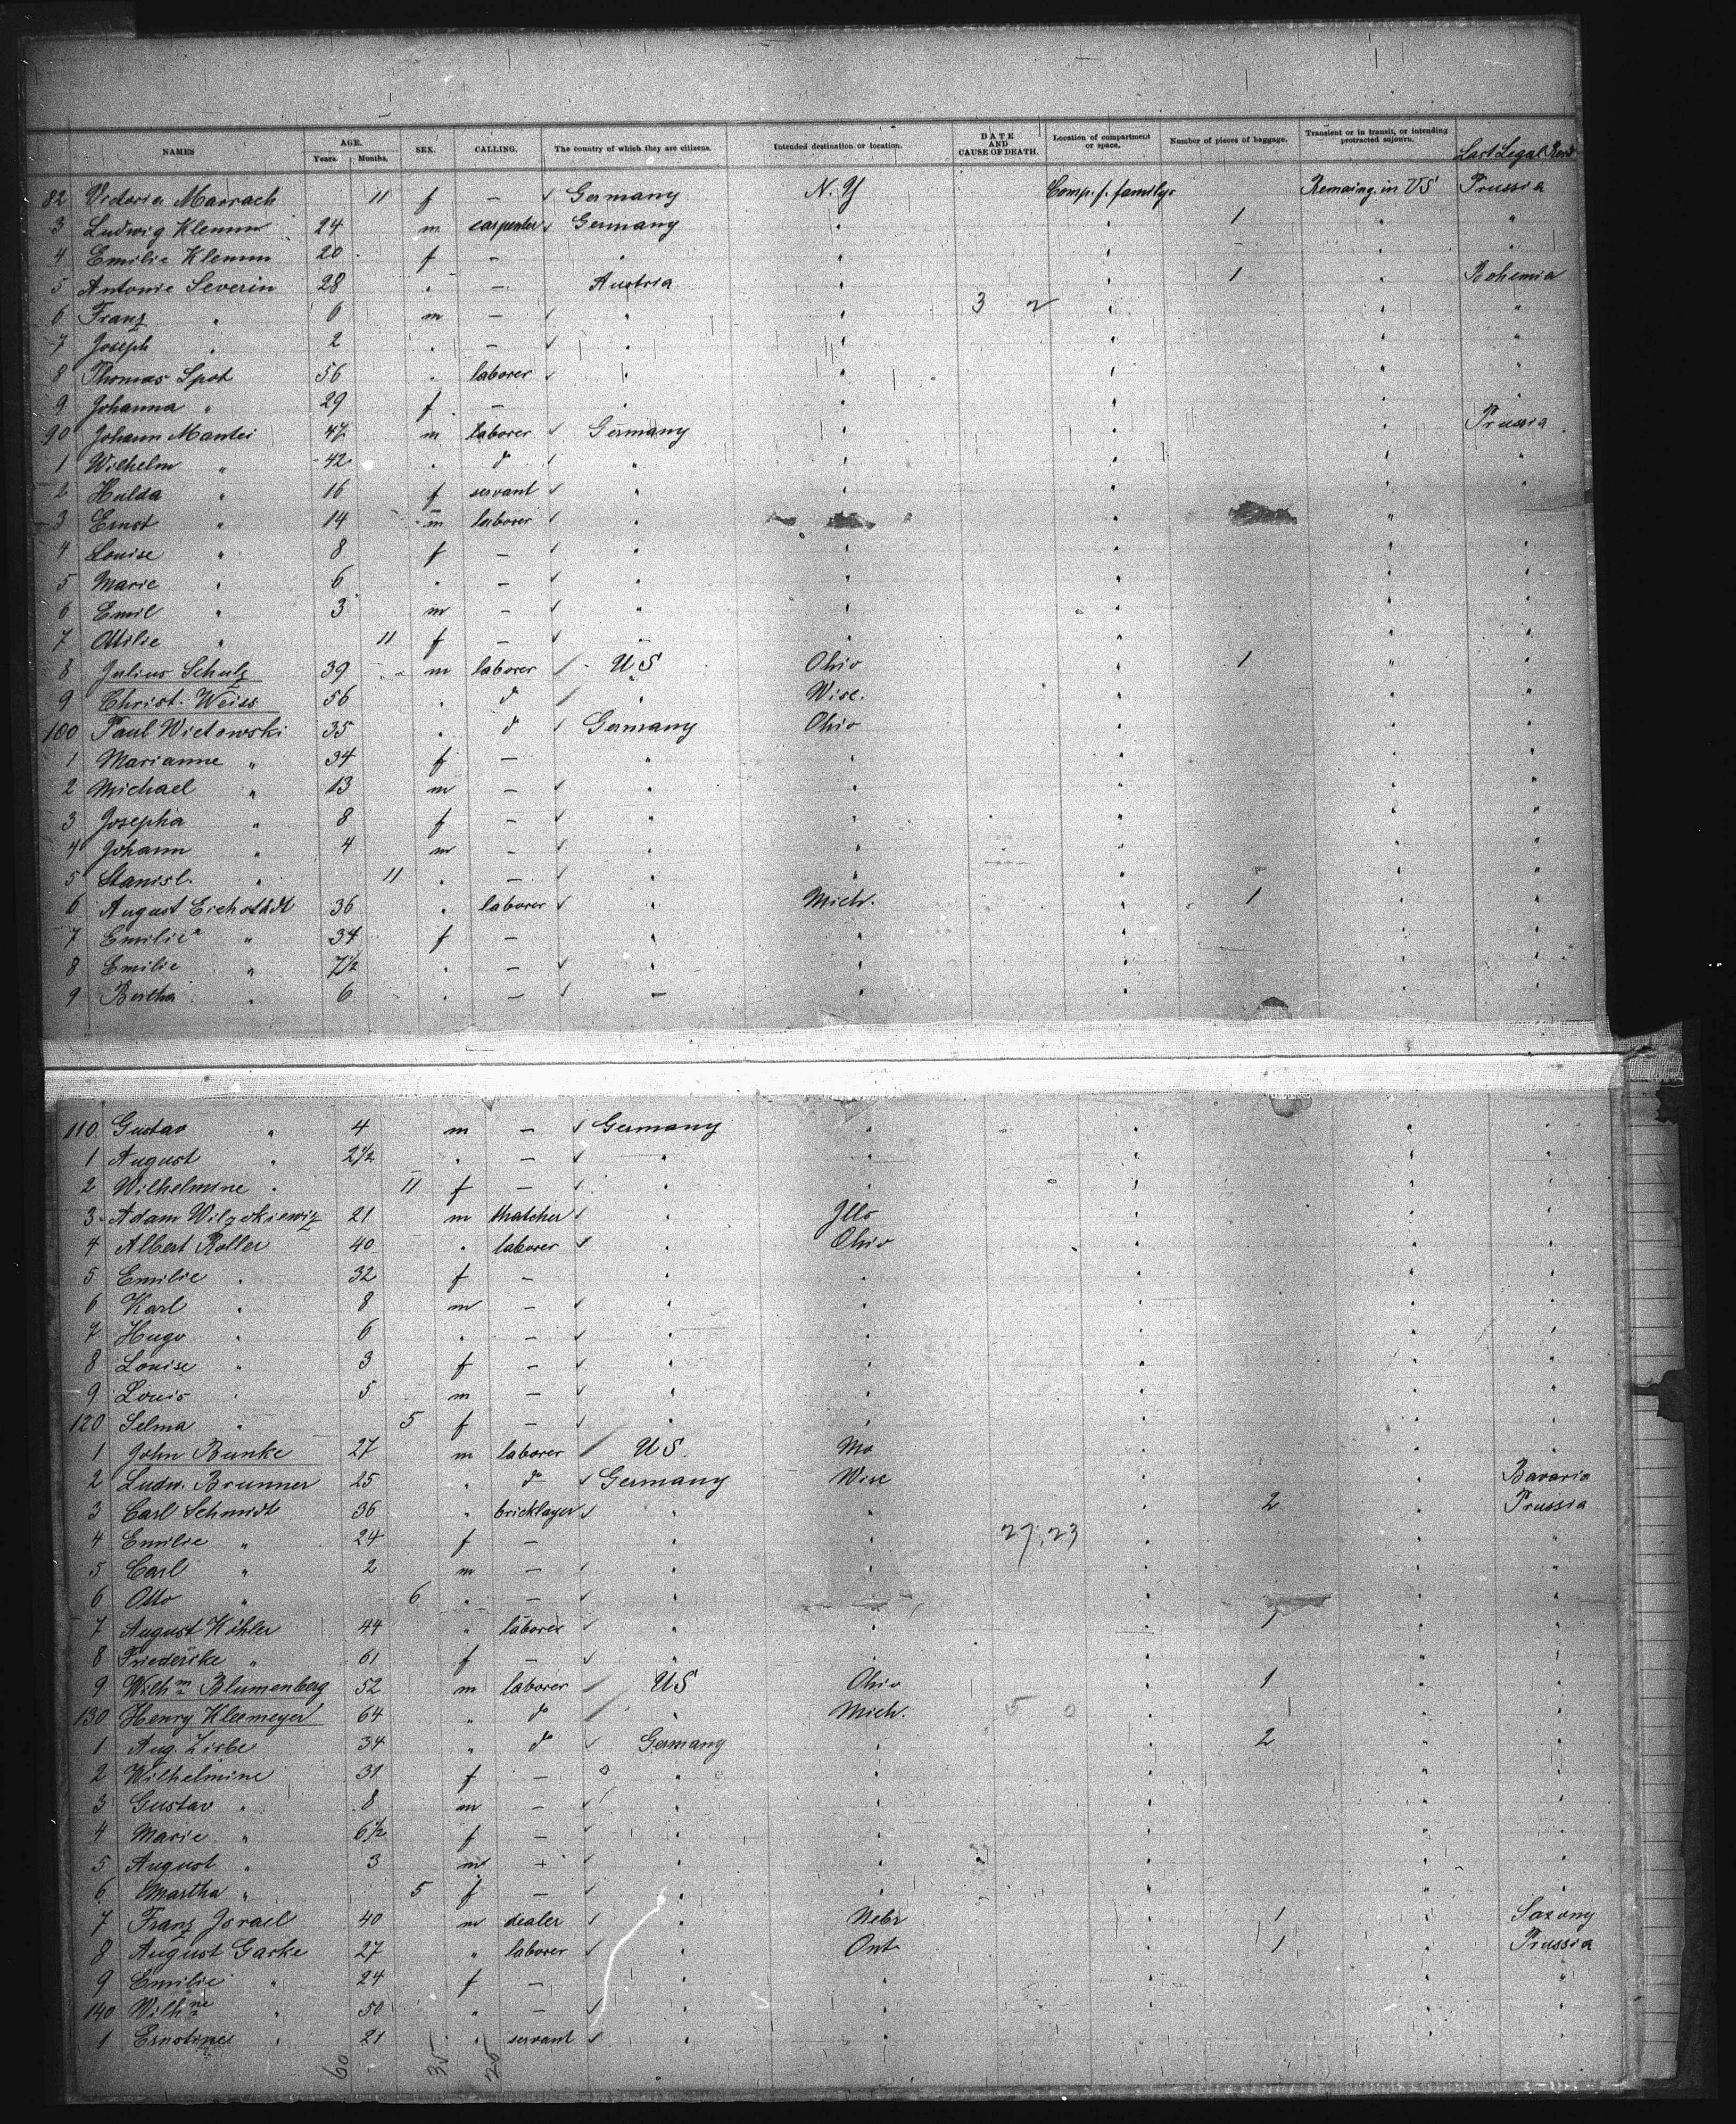 NAMES AGE. Years. Months. SEX. CALLING. The country of which they are citizens. Intended destination or location. DATE AND CAUSE OF DEATH. Location of compartment or space. Number of pieces of baggage. Transient or in transit, or intending protracted sojourn. Last Legal Resid
82 Victoria Marrach 11 f — ✓ Germany N.Y Comp. f. familys Remaing in US Prussia
3 Ludwig Klemm 24 m carpenter ✓ Germany " " 1 " "
4 Emilie Klemm 20 f — " " " – " "
5 Antonie Severin 28 " — Austria " " 1 " Bohemia
6 Franz " 6 m — ✓ " " 3 2 " " "
7 Joseph " 2 " — ✓ " " " " "
8 Thomas Spot 56 " laborer ✓ " " " " "
9 Johanna " 29 f — " " " " "
90 Johann Mantei 47 m laborer ✓ Germany " " " Prussia
1 Wilhelm " 42 " do ✓ " " " " "
2 Hulda " 16 f servant ✓ " " " " "
3 Ernst " 14 m laborer ✓ " " "
4 Louise " 8 f — ✓ " " " " "
5 Marie " 6 " — ✓ " " " " "
6 Emil " 3 m — ✓ " " " " "
7 Ottilie " 11 f — ✓ " " " " "
8 Julius Schulz 39 m laborer / US Ohio " 1 " "
9 Christ. Weiss 56 " do / " Wisc. " " "
100 Paul Wietowski 35 " do ✓ Germany Ohio " " "
1 Marianne " 34 f — " " " " "
2 Michael " 13 m — ✓ " " " " "
3 Josepha " 8 f — ✓ " " " " "
4 Johann " 4 m — ✓ " " " " "
5 Stanisl. " 11 " — ✓ " " " " "
6 August Eichstädt 36 " laborer ✓ " Mich. " 1 " "
7 Emilie " 34 f — " " " " "
8 Emilie " 7½ " — ✓ " " " " "
9 Bertha " 6 " — ✓ — " " " "
110 Gustav " 4 m — ✓ Germany " " " "
1 August " 2½ " — ✓ " " " " "
2 Wilhelmine " 11 f — ✓ " " " " "
3 Adam 21 m thatcher ✓ " Ills " " "
4 Albert Roller 40 " laborer ✓ " Ohio " " "
5 Emilie " 32 f — " " " " "
6 Karl " 8 m — ✓ " " " " "
7 Hugo " 6 " — ✓ " " " " "
8 Louise " 3 f — ✓ " " " " "
9 Louis " 5 m — ✓ " " " " "
120 Selma " 5 f — ✓ " " " " "
1 John Bunke 27 m laborer / US Mo " " "
2 Ludw. Brunner 25 " do ✓ Germany Wisc " " Bavaria
3 Carl Schmidt 36 " bricklayer ✓ " " " 2 " Prussia
4 Emilie " 24 f — " " 27,23 " " "
5 Carl " 2 m — ✓ " " " " "
6 Otto " 6 " — ✓ " " " " "
7 August Köhler 44 " laborer ✓ " " " 1 " "
8 Friederike " 61 f — ✓ " " " " "
9 Wilhm Blumenberg 52 m laborer / US Ohio " 1 " "
130 Henry Kleemeyer 64 " do / " Mich. 5 0 " " "
1 Aug. Zirbe 34 " do ✓ Germany " " 2 " "
2 Wilhelmine 31 f — " " " " "
3 Gustav " 8 m — ✓ " " " " "
4 Marie " 6½ f — ✓ " " " " "
5 August " 3 m + ✓ " " " " "
6 Martha " 5 f — ✓ " " " " "
7 Franz Israel 40 m dealer ✓ " Nebr " 1 " Saxony
8 August Garke 27 " laborer ✓ " Ont " 1 " Prussia
9 Emilie " 24 f — " " " " "
140 Wilhne " 50 " — ✓ " " " " "
1 Ernstine " 21 " servant ✓ " " " " "
60 35 25